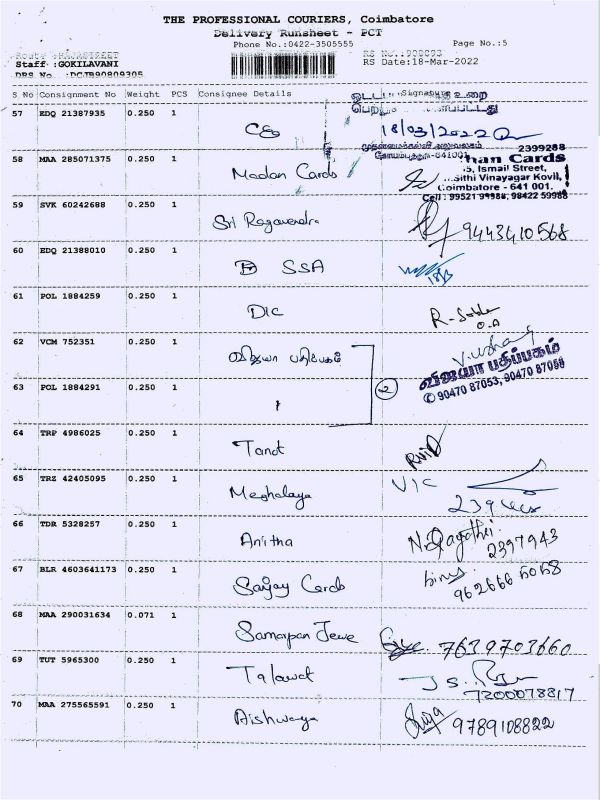 THE PROFESSIONAL COURIERS, Coimbatore
Delivery Runsheet - PCT
Phone No.:0422-3505555
Page No.:5
Route :RAJASTREET
Staff :GOKILAVANI
RS No.:908093
RS Date:18-Mar-2022
DRS No. :DCJB90809305
S No Consignment No Weight PCS Consignee Details Signature
57 EDQ 21387935 0.250 1
18/03/2022
641001
2399288
58 MAA 285071375 0.250 1 Madan Cards
han Cards
5, Ismail Street,
Sithi Vinayagar Kovil,
Coimbatore - 641 001.
Cell : 99521 99988, 98422 59988
59 SVK 60242688 0.250 1 Sri Ragavendra 9443410568
60 EDQ 21388010 0.250 1 SSA 18/3
61 POL 1884259 0.250 1 DIC
62 VCM 752351 0.250 1 விஜயா பதிப்பகம்
விஜயா பதிப்பகம்
✆ 90470 87053, 90470 87058
63 POL 1884291 0.250 1 2
64 TRP 4986025 0.250 1
65 TRZ 42405095 0.250 1 Meghalaya VIC
66 TDR 5328257 0.250 1 Anitha 2397943
67 BLR 4603641173 0.250 1 Sanjay Cards 9626665058
68 MAA 290031634 0.071 1 Samarpan Jewe 7639703660
69 TUT 5965300 0.250 1 Talawat 7200078817
70 MAA 275565591 0.250 1 Aishwarya 9789108822